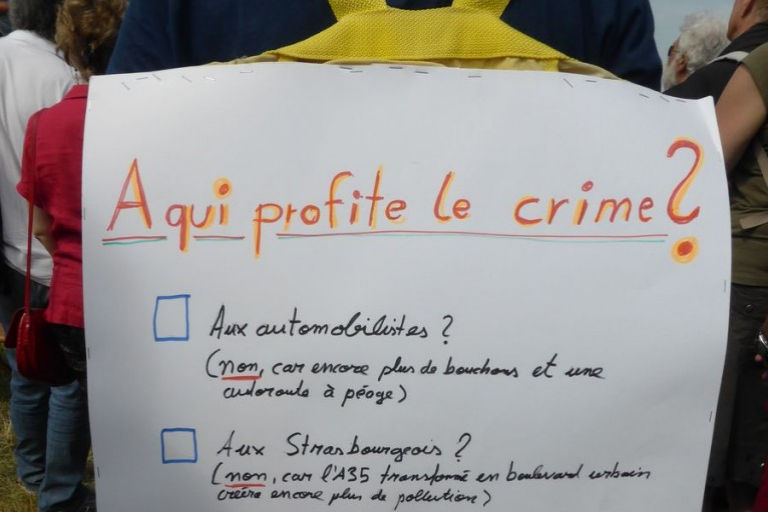 A qui profite le crime ?
Aux automobilistes ?
(non, car encore plus de bouchons et une
autoroute à péage)
Aux Strasbourgeois ?
(non, car l'A35 transformé en boulevard urbain
créera encore plus de pollution)